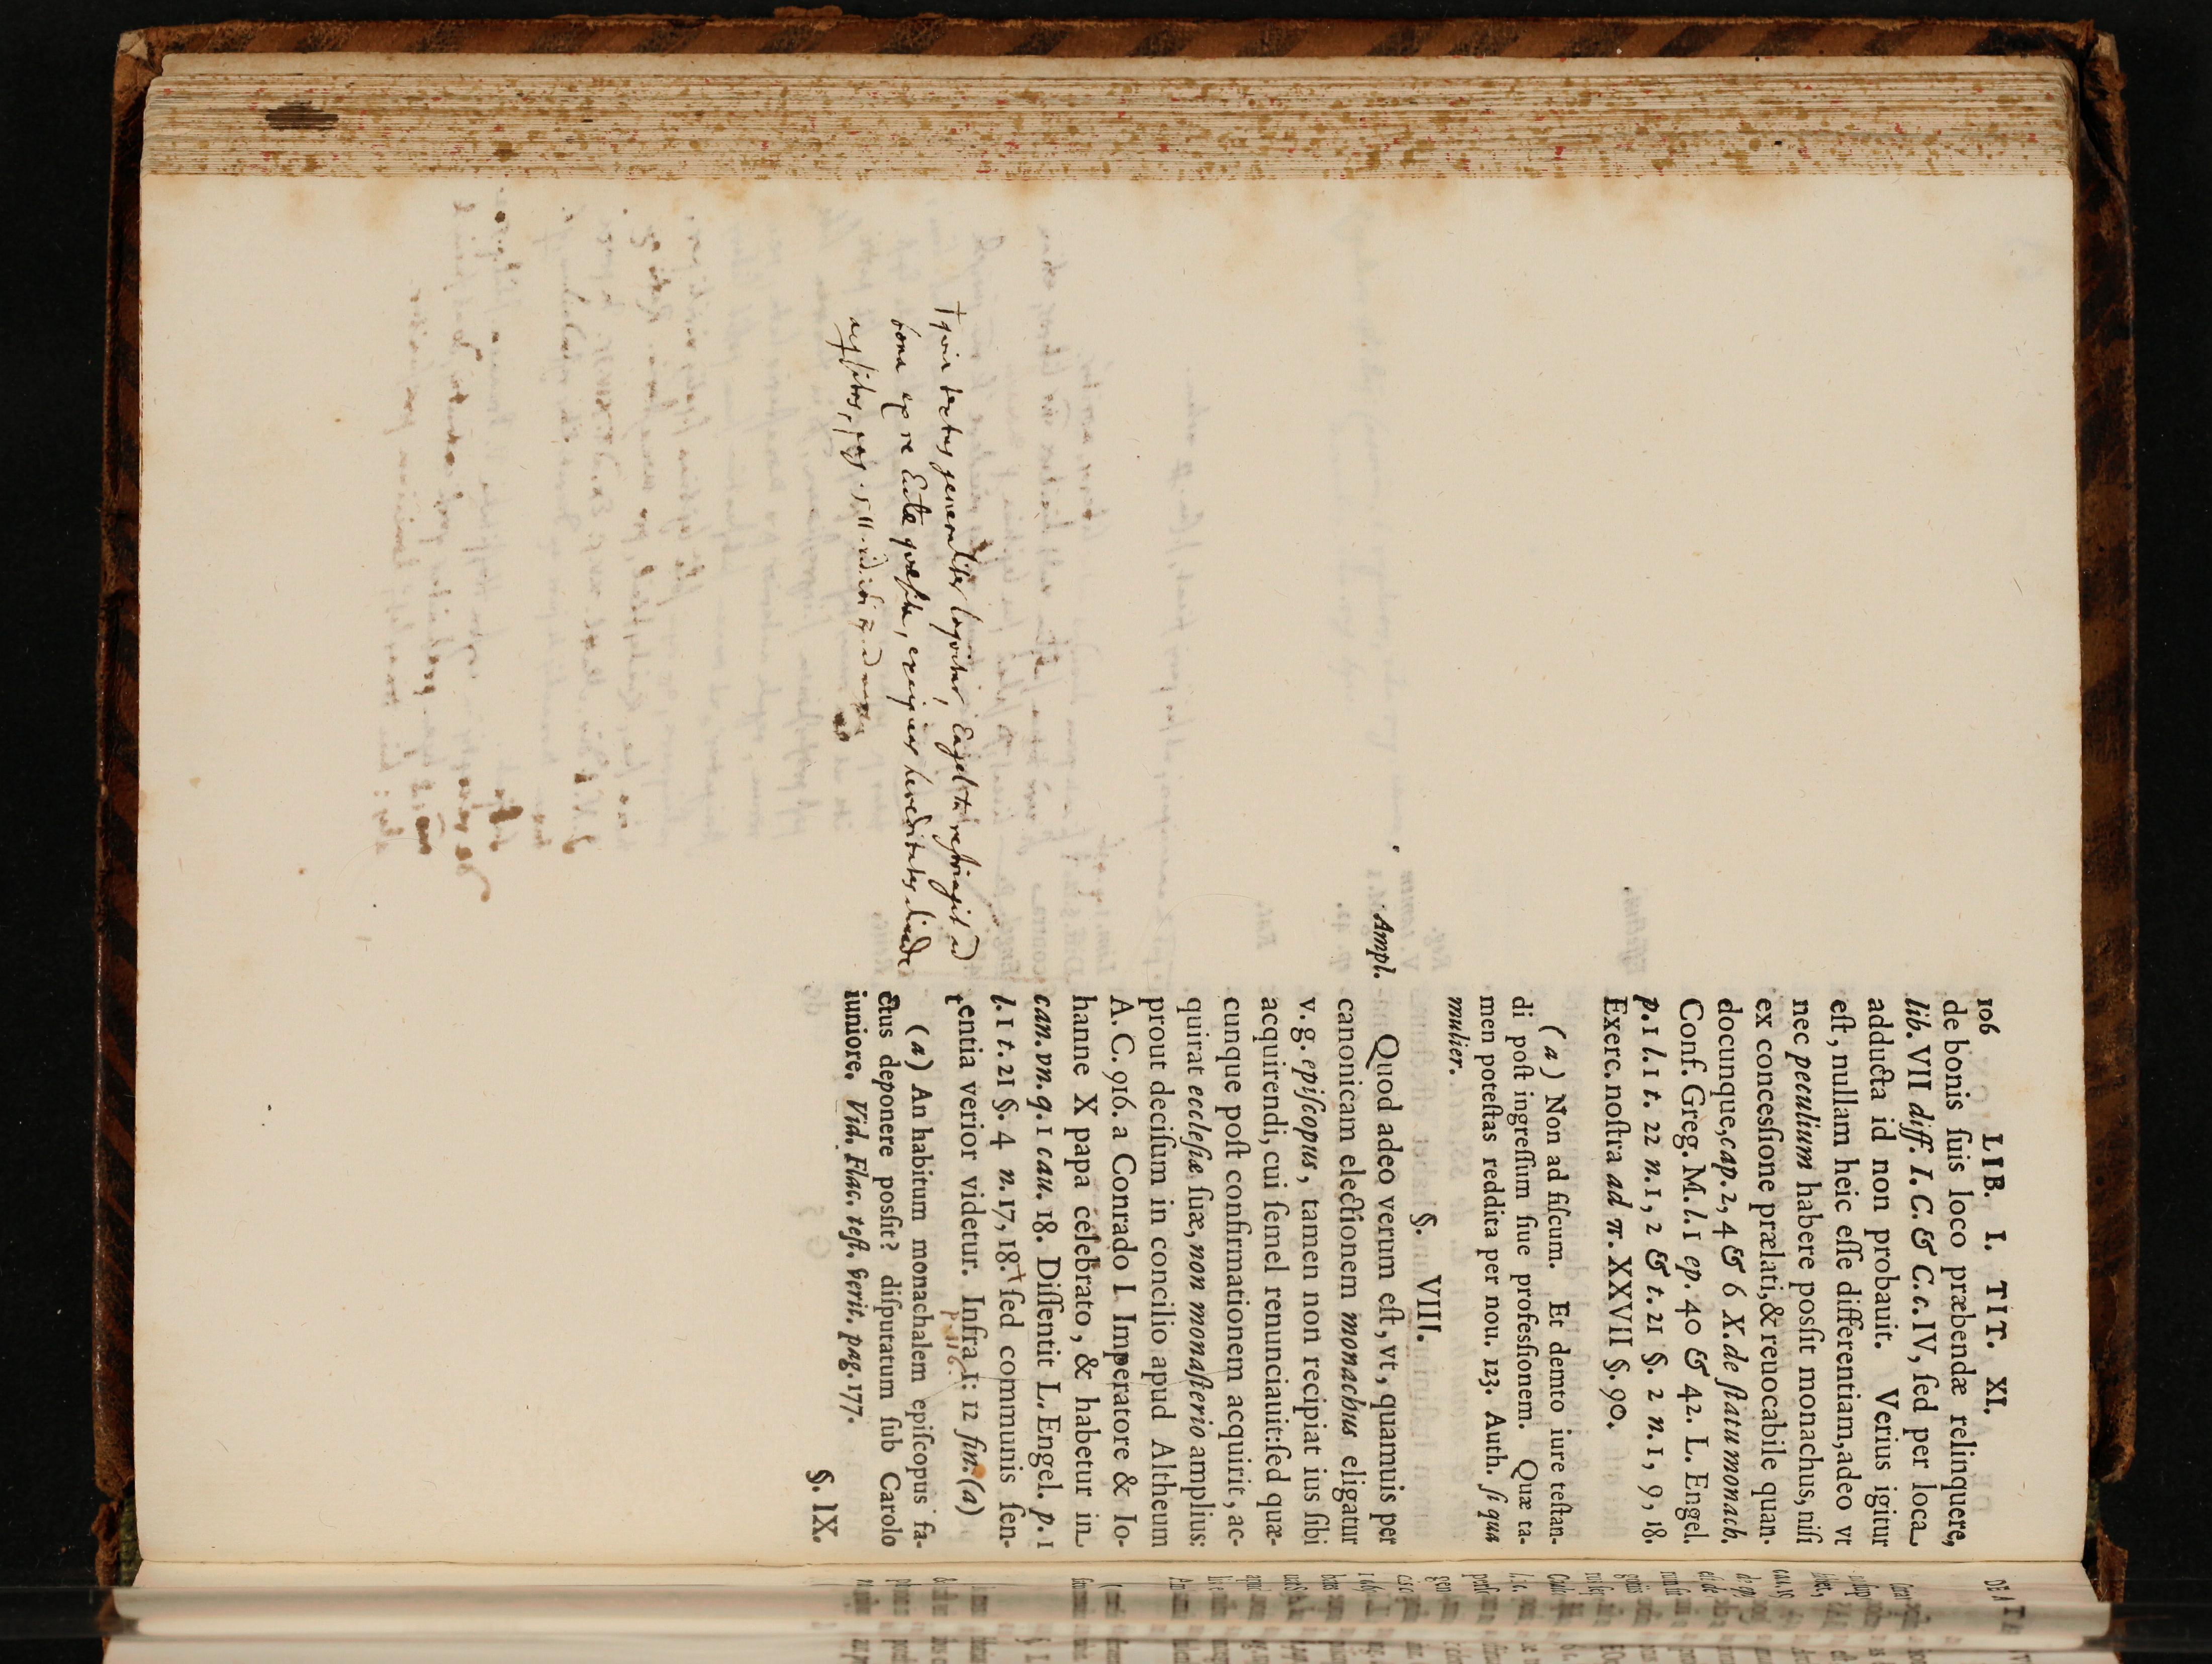 106 LIB. I. TIT. XI.
de bonis ſuis loco præbendæ relinquere,
lib. VII diff. I. C. & C. c. IV, ſed per loca
adducta id non probauit. Verius igitur
eſt, nullam heic eſſe differentiam, adeo vt
nec peculium habere poſſit monachus, niſi
ex conceſſione prælati, & reuocabile quan-
docunque, cap. 2, 4 & 6 X. de ſtatu monach.
Conf. Greg. M. l. 1 ep. 40 & 42. L. Engel.
p. 1 l. 1 t. 22 n. 1, 2 & t. 21 §. 2 n. 1, 9, 18.
Exerc. noſtra ad π. XXVII §. 90.
(a) Non ad fiſcum. Et demto iure teſtan-
di poſt ingreſſum ſiue profeſſionem. Quæ ta-
men poteſtas reddita per nou. 123. Auth. ſi qua
mulier.
§. VIII.
Ampl.
Quod adeo verum eſt, vt, quamuis per
canonicam electionem monachus eligatur
v. g. epiſcopus, tamen non recipiat ius ſibi
acquirendi, cui ſemel renunciauit: ſed quæ-
cunque poſt confirmationem acquirit, ac-
quirat eccleſiæ ſuæ, non monaſterio amplius:
prout deciſum in concilio apud Altheum
A. C. 916. a Conrado I Imperatore & Io-
hanne X papa celebrato, & habetur in
can. vn. q. 1 cau. 18. Diſſentit L. Engel. p. 1
l. 1 t. 21 §. 4 n. 17, 18. † ſed communis ſen-
tentia verior videtur. Infra 1: 12 fin. (a)
p. 116.
(a) An habitum monachalem epiſcopus fa-
ctus deponere poſſit? diſputatum ſub Carolo
iuniore. Vid. Flac. teſt. verit. pag. 177.
§. IX.
† quia textus generaliter loquitur, Engel tn reſtringit ad
bona ex re Eccleſiæ quæſita, excipiens hereditates